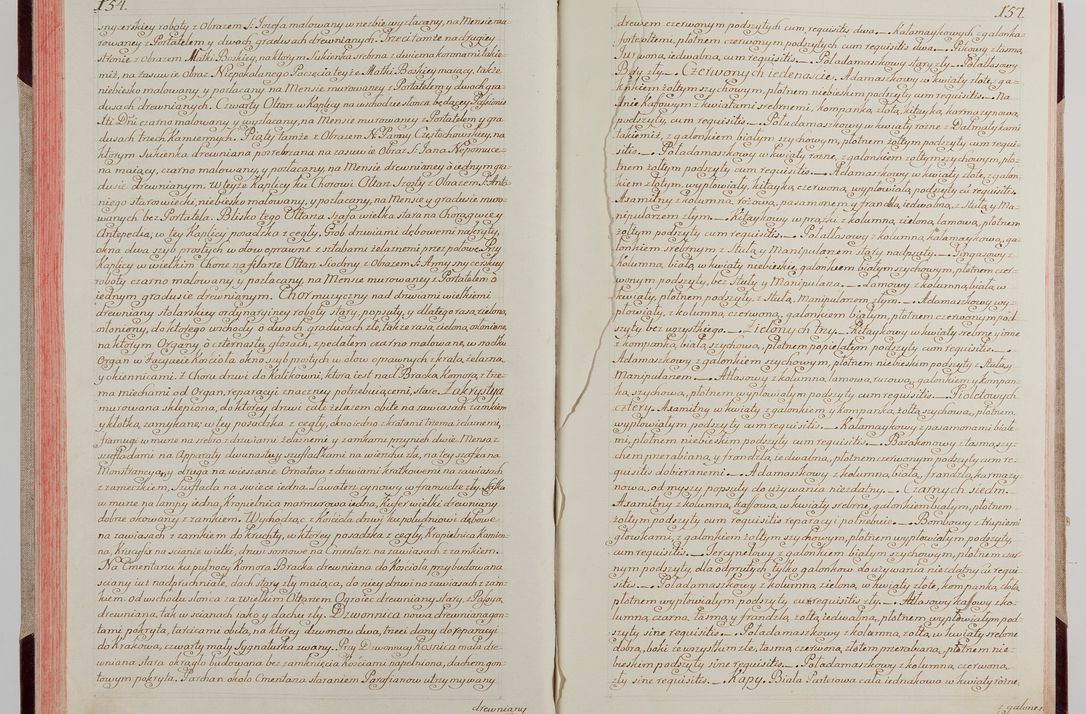 154.
snycerskiey roboty z Obrazem S. Jozefa malowany w nezbie wyzłacany, na Mensie mu-
rowaney z Portatelem y dwoch gradusach drewnianych. Trzeci tamże na drugiey
stronie z Obrazem Matki Boskiey, na ktorym Sukienka srebrna z dwiema koronami takie-
miż, na zasuwie Obraz Niepokalanego Poczęcia teyże Matki Boskiey maiący, także
niebiesko malowany, y pozłacany na Mensie murowaney z Portatelem y dwoch gra-
dusach drewnianych. Czwarty Ołtarz w Kaplicy na wschodzie słonca będącey Passionis
Xti Dni czarno malowany y wyzłacany, na Mensie murowaney z Portatelem y gra-
dusach trzech Kamiennych. Piąty tamże z Obrazem N. Panny Częstochowskiey, na
ktorym Sukienka drewniana posrebrzana na zasuwie Obraz S. Jana Nepomuce-
na maiący, czarno malowany, y pozłacany, na Mensie drewnianey o iednym gra-
dusie drewnianym. W teyże Kaplicy ku Chorowi Ołtarz Szosty z Obrazem S. Anto-
niego staroswiecki, niebiesko malowany, y pozłacany, na Mensie y gradusie muro-
wanych bez Portatela. Blisko tego Ołtarza Szafa wielka stara na Chorągwie y
Antepedia, w tey Kaplicy posadzka z cegły. Grob drzwiami dębowemi nakryty,
okna dwa szyb prostych w ołow oprawne z sztabami żelaznemi przez połowę. Przy
Kaplicy w wielkim Chorze na filarze Ołtarz Siodmy z Obrazem S. Anny snycerskiey
roboty czarno malowany y pozłacany, na Mensie murowaney z Portatelem o
iednym gradusie drewnianym. Chor muzyczny nad drzwiami wielkiemi
drewniany stolarskiey ordynaryiney roboty stary, popsuty, y dlatego rasą zieloną
osłoniony, do ktorego wschody o dwoch gradusach złe, także rasą zieloną osłonione,
na ktorym Organy o czternastu głosach, z pedałem czarno malowane, w srodku
Organ w Facyacie Kościoła okno szyb prostych w ołow oprawnych z kratą żelazną
y okiennicami. Z Choru drzwi do Kalikowni, ktora iest nad Bracką Komorą z trze-
ma miechami od Organ, reparacyi znaczney potrzebuiącemi, stare. Zakrystya
murowana sklepiona, do ktorey drzwi całe żelazem obite na zawiasach z zamkiem
y kłotką zamykane, w tey posadzka z cegły, okno iedno z kratami trzema żelaznemi,
framugi w murze na srebro z drzwiami żelaznemi y zamkami przy nich dwie. Mensa z
szufladami na Apparaty dwunastu y szufladkami na wierzchu zła, na tey szafka na
Monstrancyą, y druga na wieszanie Ornatow z drzwiami kratkowemi na zawiasach
z zameczkiem, Szuflada na swiece iedna. Lawaterz cynowy w framudze zły. Szafka
w murze na lampy iedna, Kropielnica marmurowa iedna, Kufer wielki drewniany
dobrze okowany z zamkiem. Wychodząc z Kościoła drzwi ku południowi dębowe
na zawiasach z zamkiem do kruchty, w ktorey posadzka z cegły, Kropielnica Kamien-
na, Krucyfix na scianie wielki, drzwi sosnowe na Cmentarz na zawiasach z zamkiem.
Na Cmentarzu ku pułnocy Komora Bracka drewniana do Kościoła przybudowana
sciany iuż nadpruchniałe, dach stary zły maiąca, do niey drzwi na zawiasach z zam-
kiem. od wschodu słonca za wielkim Ołtarzem Ogroiec drewniany stary, z Passyą
drewnianą, tak w scianach iako y dachu zły. Dzwonnica nowa drewniana gon-
tami pokryta, tarcicami obita, na ktorey dzwonow dwa, trzeci dany do reparacyi
do Krakowa, czwarty mały Sygnaturka zwany. Przy Dzwonnicy Kosnica mała dre-
wniana stara okrągło budowana bez zamknięcia Kościami napełniona, dachem gon-
towym pokryta. Parchan około Cmentarza staraniem Parafianow utrzymywany
drewniany
157.
drewem czerwonym podszytych cum requisitis dwa. Kałamaykowych z galonka-
fortołtemi, płotnem czerwonym podszytych cum requisitis dwa. Pikowy z tasmą
Turzową, iedwabną, cum requisitis. Poładamaszkowy stary zły. Połatłasowy
Bury zły. Czerwonych iedenascie. Adamaszkowy w kwiaty złote, z ga-
lonkiem żołtym szychowym, płotnem niebieskim podszyty cum requisitis. Na
dnie kafowym z kwiatami srebrnemi, kompanką złotą, kitayką karmazynową
podszyty, cum requisitis. Poładamaszkowy w kwiaty rożne z Dalmatykami
takiemiż, z galonkiem białym szychowym, płotnem żołtym podszyty cum requi-
sitis. Poładamaszkowy w kwiaty rożne, z galonkiem żołtym szychowym, pło-
tnem żołtym podszyty cum requisitis. Adamaszkowy w kwiaty złote, z galon-
kiem żołtym, wypłowiały, kitayką czerwoną, wypłowiałą podszyty cū requisitis.
Axamitny z kolumną, rożową, passamonem y frandzlą iedwabną, z Stułą y Ma-
nipularzem złym. Kitaykowy w prążki z kolumną zieloną lamową, płotnem
żołtym podszyty cum requisitis. Połatłasowy z kolumną, kałamaykową, ga-
lonkiem srebrnym z Stułą y Manipularzem stary nadpsuty. Pingasowy z
kolumną, białą, w kwiaty niebieskie, galonkiem białym szychowym, płotnem czer-
wonym podszyty, bez Stuły y Manipularza. Lamowy z kolumną, białą w
kwiaty, płotnem podszyty z Stułą, Manipularzem złym. Adamaszkowy wy-
płowiały, z kolumną czerwoną, galonkiem białym, płotnem czerwonym pod-
szyty bez wszystkiego. Zielonych trzy. Kitaykowy w kwiaty srebrne y inne
z kompanką, białą szychową, płotnem popielatym podszyty cum requisitis.
Adamaszkowy z galonkiem szychowym, płotnem niebieskim podszyty z Stułą y
Manipularzem. Atłasowy z kolumną, lamową, rużową, galonkiem y kompan-
ką szychową, płotnem wypłowiałym podszyty cum requisitis. Fioletowych
cztery. Axamitny w kwiaty z galonkiem y kompanką żołtą szychową, płotnem
wypłowiałym podszyty cum requisitis. Kałamaykowy z passamonami białe-
mi, płotnem niebieskim podszyty cum requisitis. Barakanowy z tasmą szy-
chem przerabianą y frandzlą iedwabną, płotnem czerwonym podszyty cum re-
quisitis dobieranemi. Adamaszkowy z kolumną, białą, frandzlą, karmazy-
nową, od myszy popsuty do używania niezdatny. Czarnych siedm.
Axamitny z kolumną, kaffową w kwiaty srebrne, galonkiem białym, płotnem
żołtym podszyty cum requisitis reparacyi potrzebuie. Bombowy z trupiemi
głowkami, z galonkiem żołtym szychowym, płotnem wypłowiałym podszyty,
cum requisitis. Tercynelowy z galonkiem białym szychowym, płotnem czar-
nym podszyty, dla odprutych tylko galonkow do używania niezdatny cū requi-
sitis. Poładamaszkowy z kolumną, zieloną, w kwiaty złote, kompanką, złotą
płotnem wypłowiałym podszyty, cum requisitis zły. Atłasowy kaffowy z ko-
lumną, czarną, tasmą y frandzlą, żołtą iedwabną, płotnem wypłowiałym pod-
szyty sine requisitis. Poładamaszkowy z kolumną, żołtą, w kwiaty srebrne
dobrą, boki ze wszystkim złe, tasmą czerwoną, złotem przerabianą, płotnem nie-
bieskim podszyty sine requisitis. Poładamaszkowy z kolumną czerwoną
zły sine requisitis. Kapy. Biała Parterowa cała iednakowa w kwiaty rożne,
z galonem